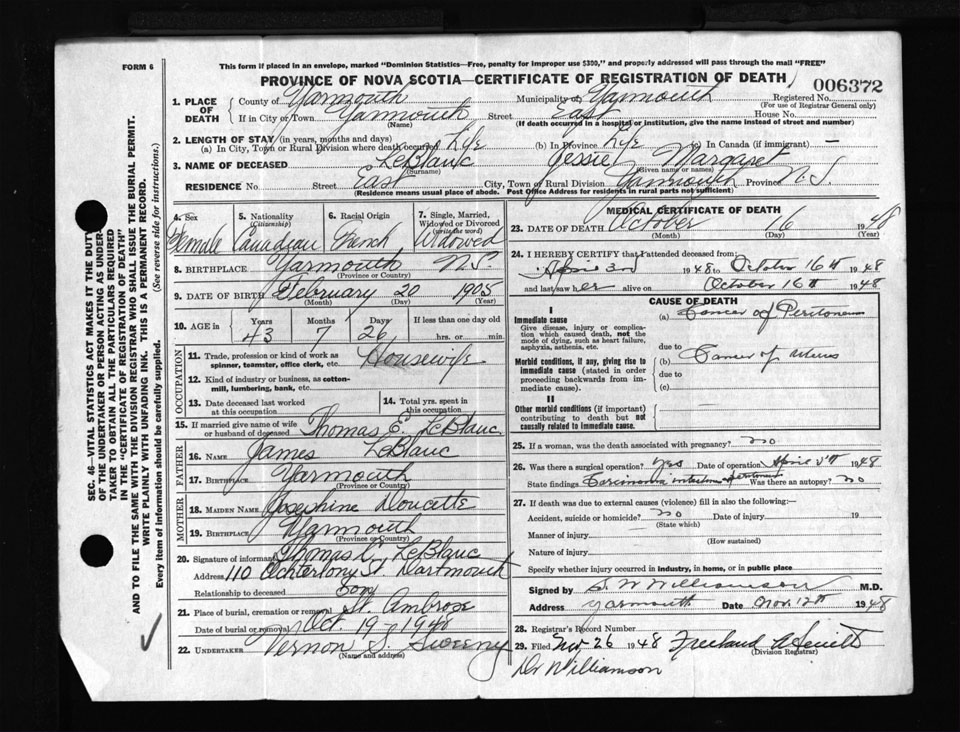 FORM 6
This form if placed in an envelope, marked "Dominion Statistics—Free, penalty for improper use $300," and properly addressed will pass through the mail "FREE"
PROVINCE OF NOVA SCOTIA—CERTIFICATE OF REGISTRATION OF DEATH
006372
1. PLACE OF DEATH
County of Yarmouth Municipality of Yarmouth Registered No.
(For use of Registrar General only)
If in City or Town Yarmouth Street East House No.
(Name) (If death occurred in a hospital or institution, give the name instead of street and number)
2. LENGTH OF STAY (in years, months and days)
(a) In City, Town or Rural Division where death occurred Life (b) In Province Life (c) In Canada (if immigrant) —
3. NAME OF DECEASED LeBlanc Jessie Margaret
(Surname) (Given name or names)
RESIDENCE No. Street East City, Town or Rural Division Yarmouth Province N.S.
(Residence means usual place of abode. Post Office Address for residents in rural parts not sufficient)
4. Sex
Female
5. Nationality
(Citizenship)
Canadian
6. Racial Origin
French
7. Single, Married, Widowed or Divorced
(write the word)
Widowed
8. BIRTHPLACE Yarmouth N.S.
(Province or Country)
9. DATE OF BIRTH February 20 1905
(Month) (Day) (Year)
10. AGE in Years Months Days If less than one day old
43 7 26 hrs. or min.
OCCUPATION
11. Trade, profession or kind of work as spinner, teamster, office clerk, etc. Housewife
12. Kind of industry or business, as cotton-mill, lumbering, bank, etc.
13. Date deceased last worked at this occupation
14. Total yrs. spent in this occupation
15. If married give name of wife or husband of deceased Thomas E. LeBlanc
FATHER
16. NAME James LeBlanc
17. Birthplace Yarmouth
(Province or Country)
MOTHER
18. MAIDEN NAME Josephine Doucette
19. BIRTHPLACE Yarmouth
(Province or Country)
20. Signature of informant Thomas C. LeBlanc
Address 110 Ochterlony St. Dartmouth
Relationship to deceased Son
21. Place of burial, cremation or removal St. Ambrose
Date of burial or removal Oct. 19 - 1948
22. UNDERTAKER Vernon S. Sweeny
(Name and address)
MEDICAL CERTIFICATE OF DEATH
23. DATE OF DEATH October 16 1948
(Month) (Day) (Year)
24. I HEREBY CERTIFY that I attended deceased from:
April 3rd 1948 to October 16th 1948
and last saw her October 16th 1948
CAUSE OF DEATH
I
Immediate cause
Give disease, injury or complication which caused death, not the mode of dying, such as heart failure, asphyxia, asthenia, etc.
(a) Cancer of Peritoneum
due to
Morbid conditions, if any, giving rise to immediate cause (stated in order proceeding backwards from immediate cause).
(b) Cancer of uterus
due to
(c)
II
Other morbid conditions (if important) contributing to death but not causally related to immediate cause.
25. If a woman, was the death associated with pregnancy? no
26. Was there a surgical operation? yes Date of operation April 1948
State findings Carcinoma Was there an autopsy? no
27. If death was due to external causes (violence) fill in also the following:—
Accident, suicide or homicide? no Date of injury 19
(State which)
Manner of injury
(How sustained)
Nature of injury
Specify whether injury occurred in industry, in home, or in public place
Signed by S. W. Williamson M.D.
Address Yarmouth Date Nov. 12th 1948
28. Registrar's Record Number
29. Filed Nov 26 1948
(Division Registrar)
Dr Williamson
SEC. 46—VITAL STATISTICS ACT MAKES IT THE DUTY OF THE UNDERTAKER OR PERSON ACTING AS UNDERTAKER TO OBTAIN ALL THE PARTICULARS REQUIRED IN THE "CERTIFICATE OF REGISTRATION OF DEATH"
AND TO FILE THE SAME WITH THE DIVISION REGISTRAR WHO SHALL ISSUE THE BURIAL PERMIT.
WRITE PLAINLY WITH UNFADING INK. THIS IS A PERMANENT RECORD.
Every item of information should be carefully supplied. (See reverse side for instructions.)